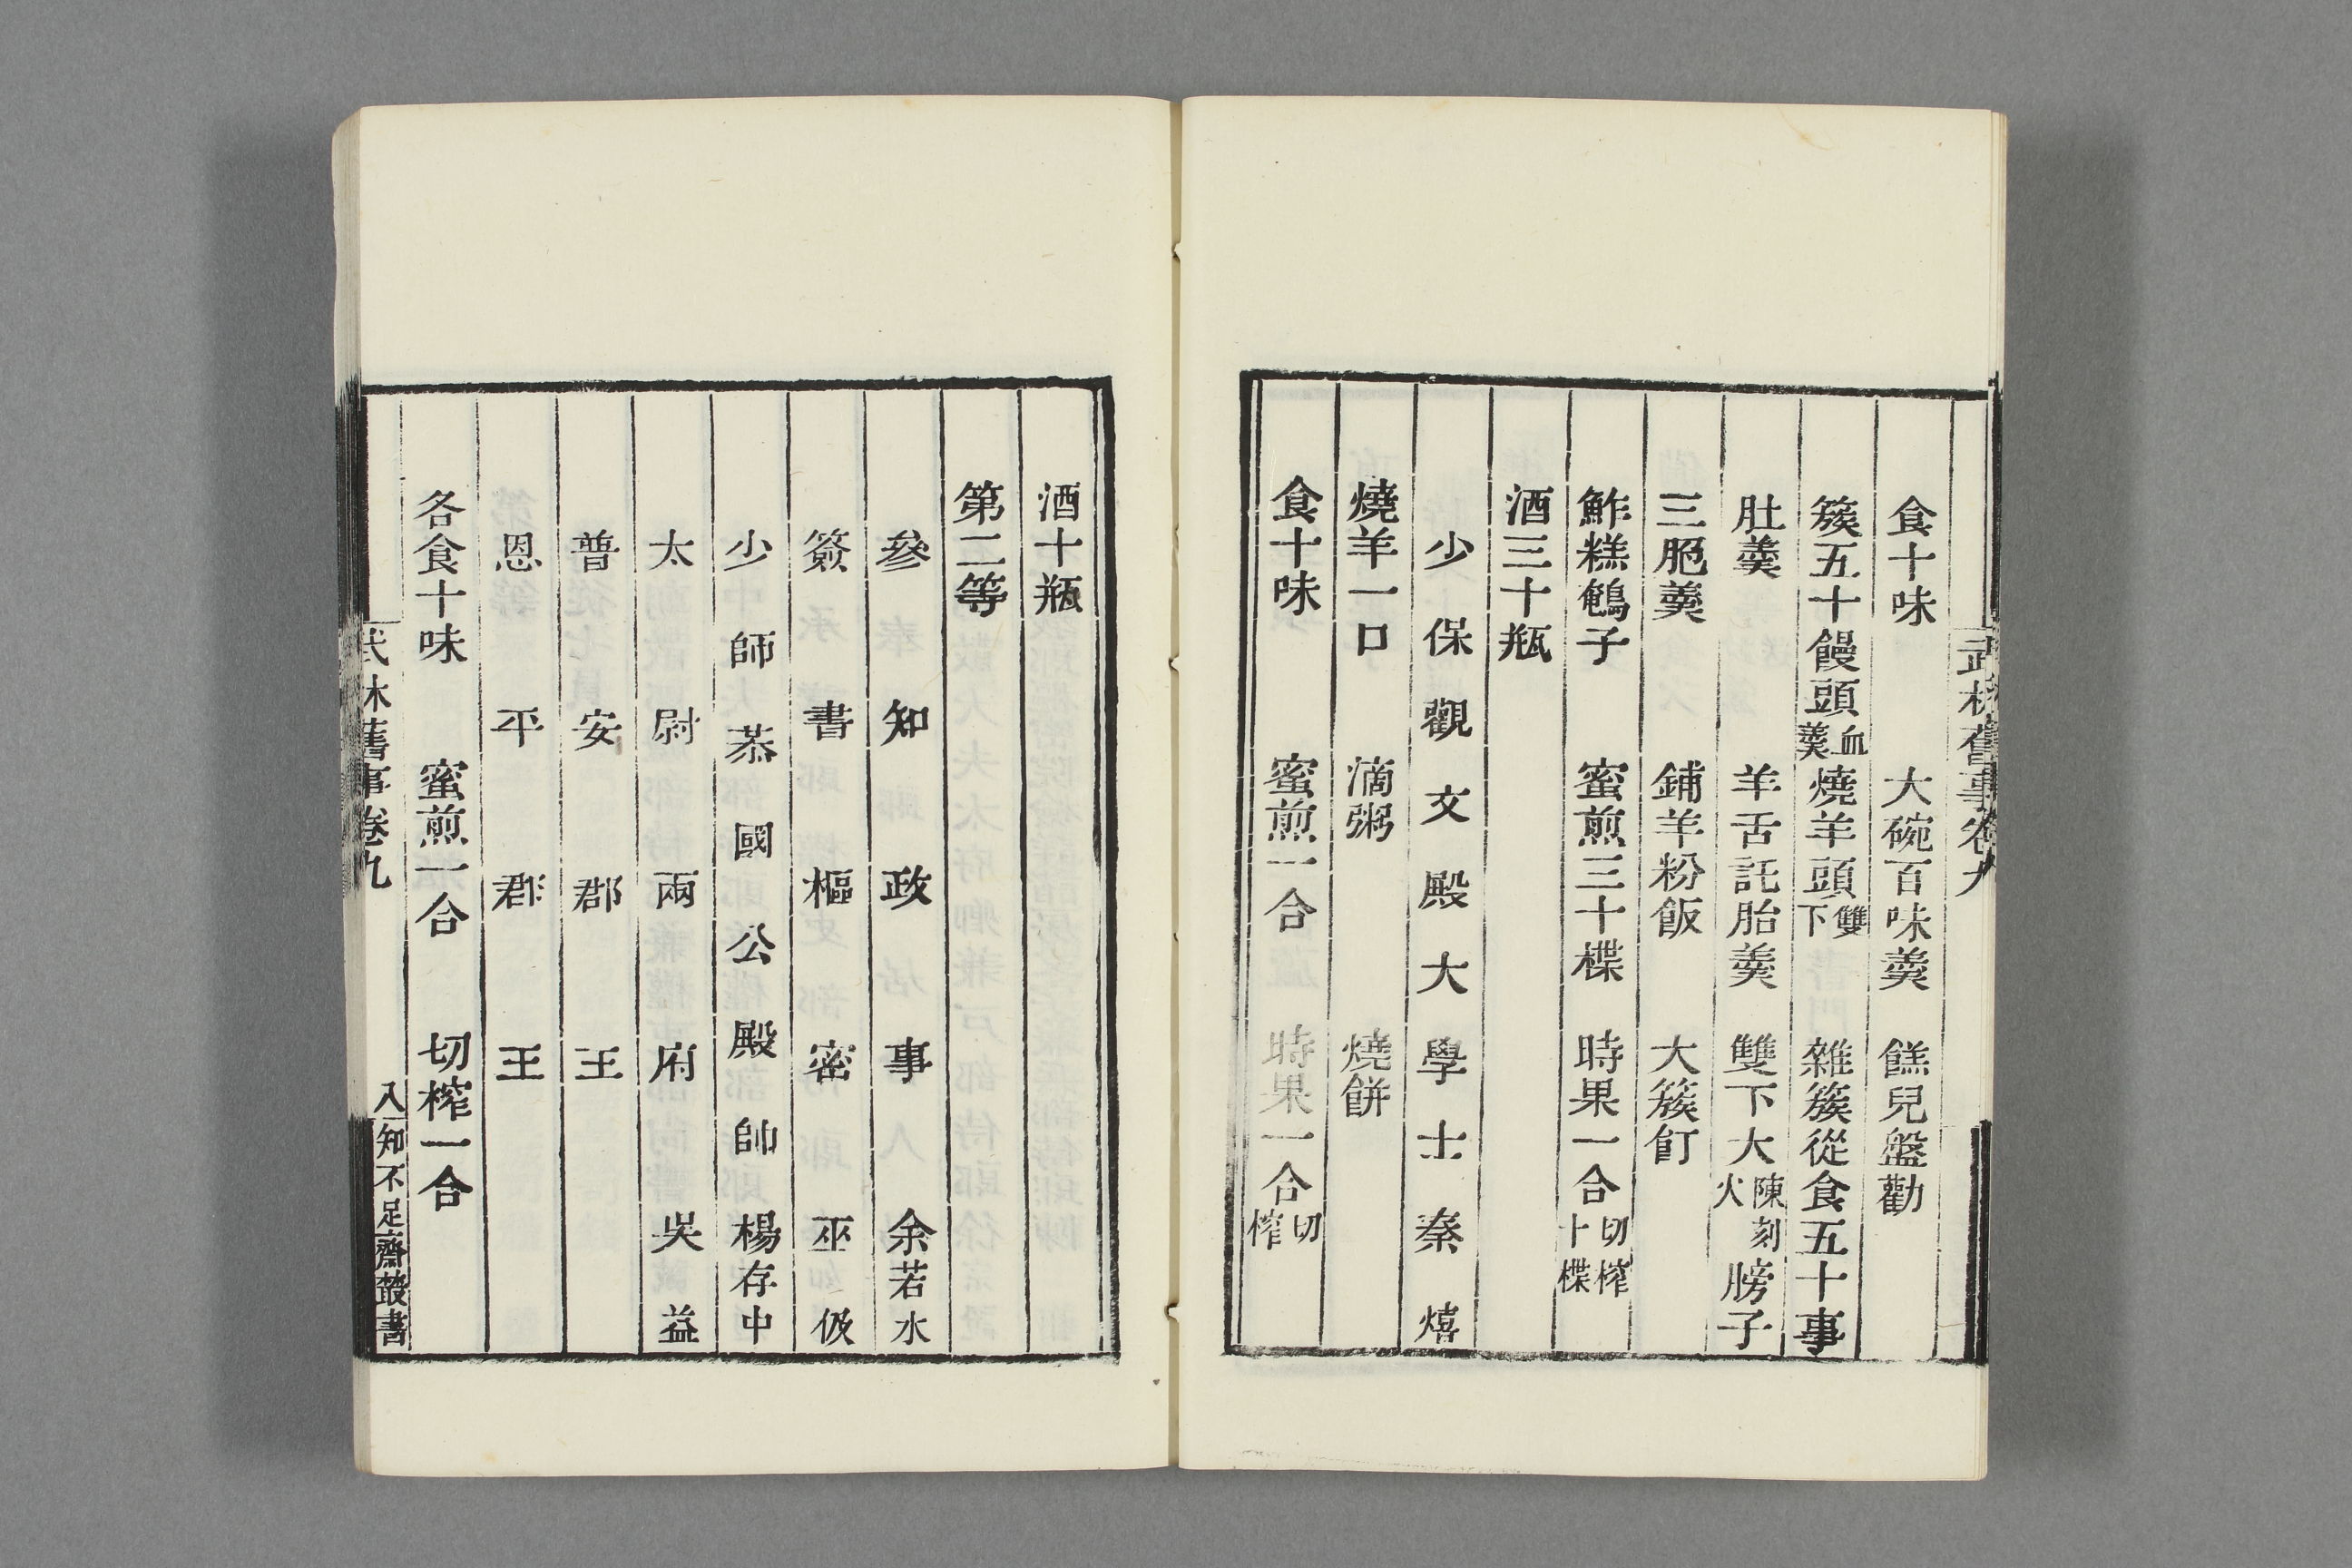 食十味 大碗百味羹 餻兒盤勸
簇五十饅頭血羹 燒羊頭雙下 雜簇從食五十事
肚羹 羊舌託胎羹 雙下大陳刻火膀子
三脃羹 鋪羊粉飯 大簇飣
鮓糕鵪子 蜜煎三十楪 時果一合切榨十楪
酒三十瓶
少保觀文殿大學士秦熺
燒羊一口 滴粥 燒餅
食十味 蜜煎一合 時果一合切榨
酒十瓶
第二等
參知政事余若水
簽書樞密巫伋
少師恭國公殿帥楊存中
太尉兩府吳益
普安郡王
恩平郡王
各食十味 蜜煎一合 切榨一合
武林舊事卷九 八 知不足齋叢書